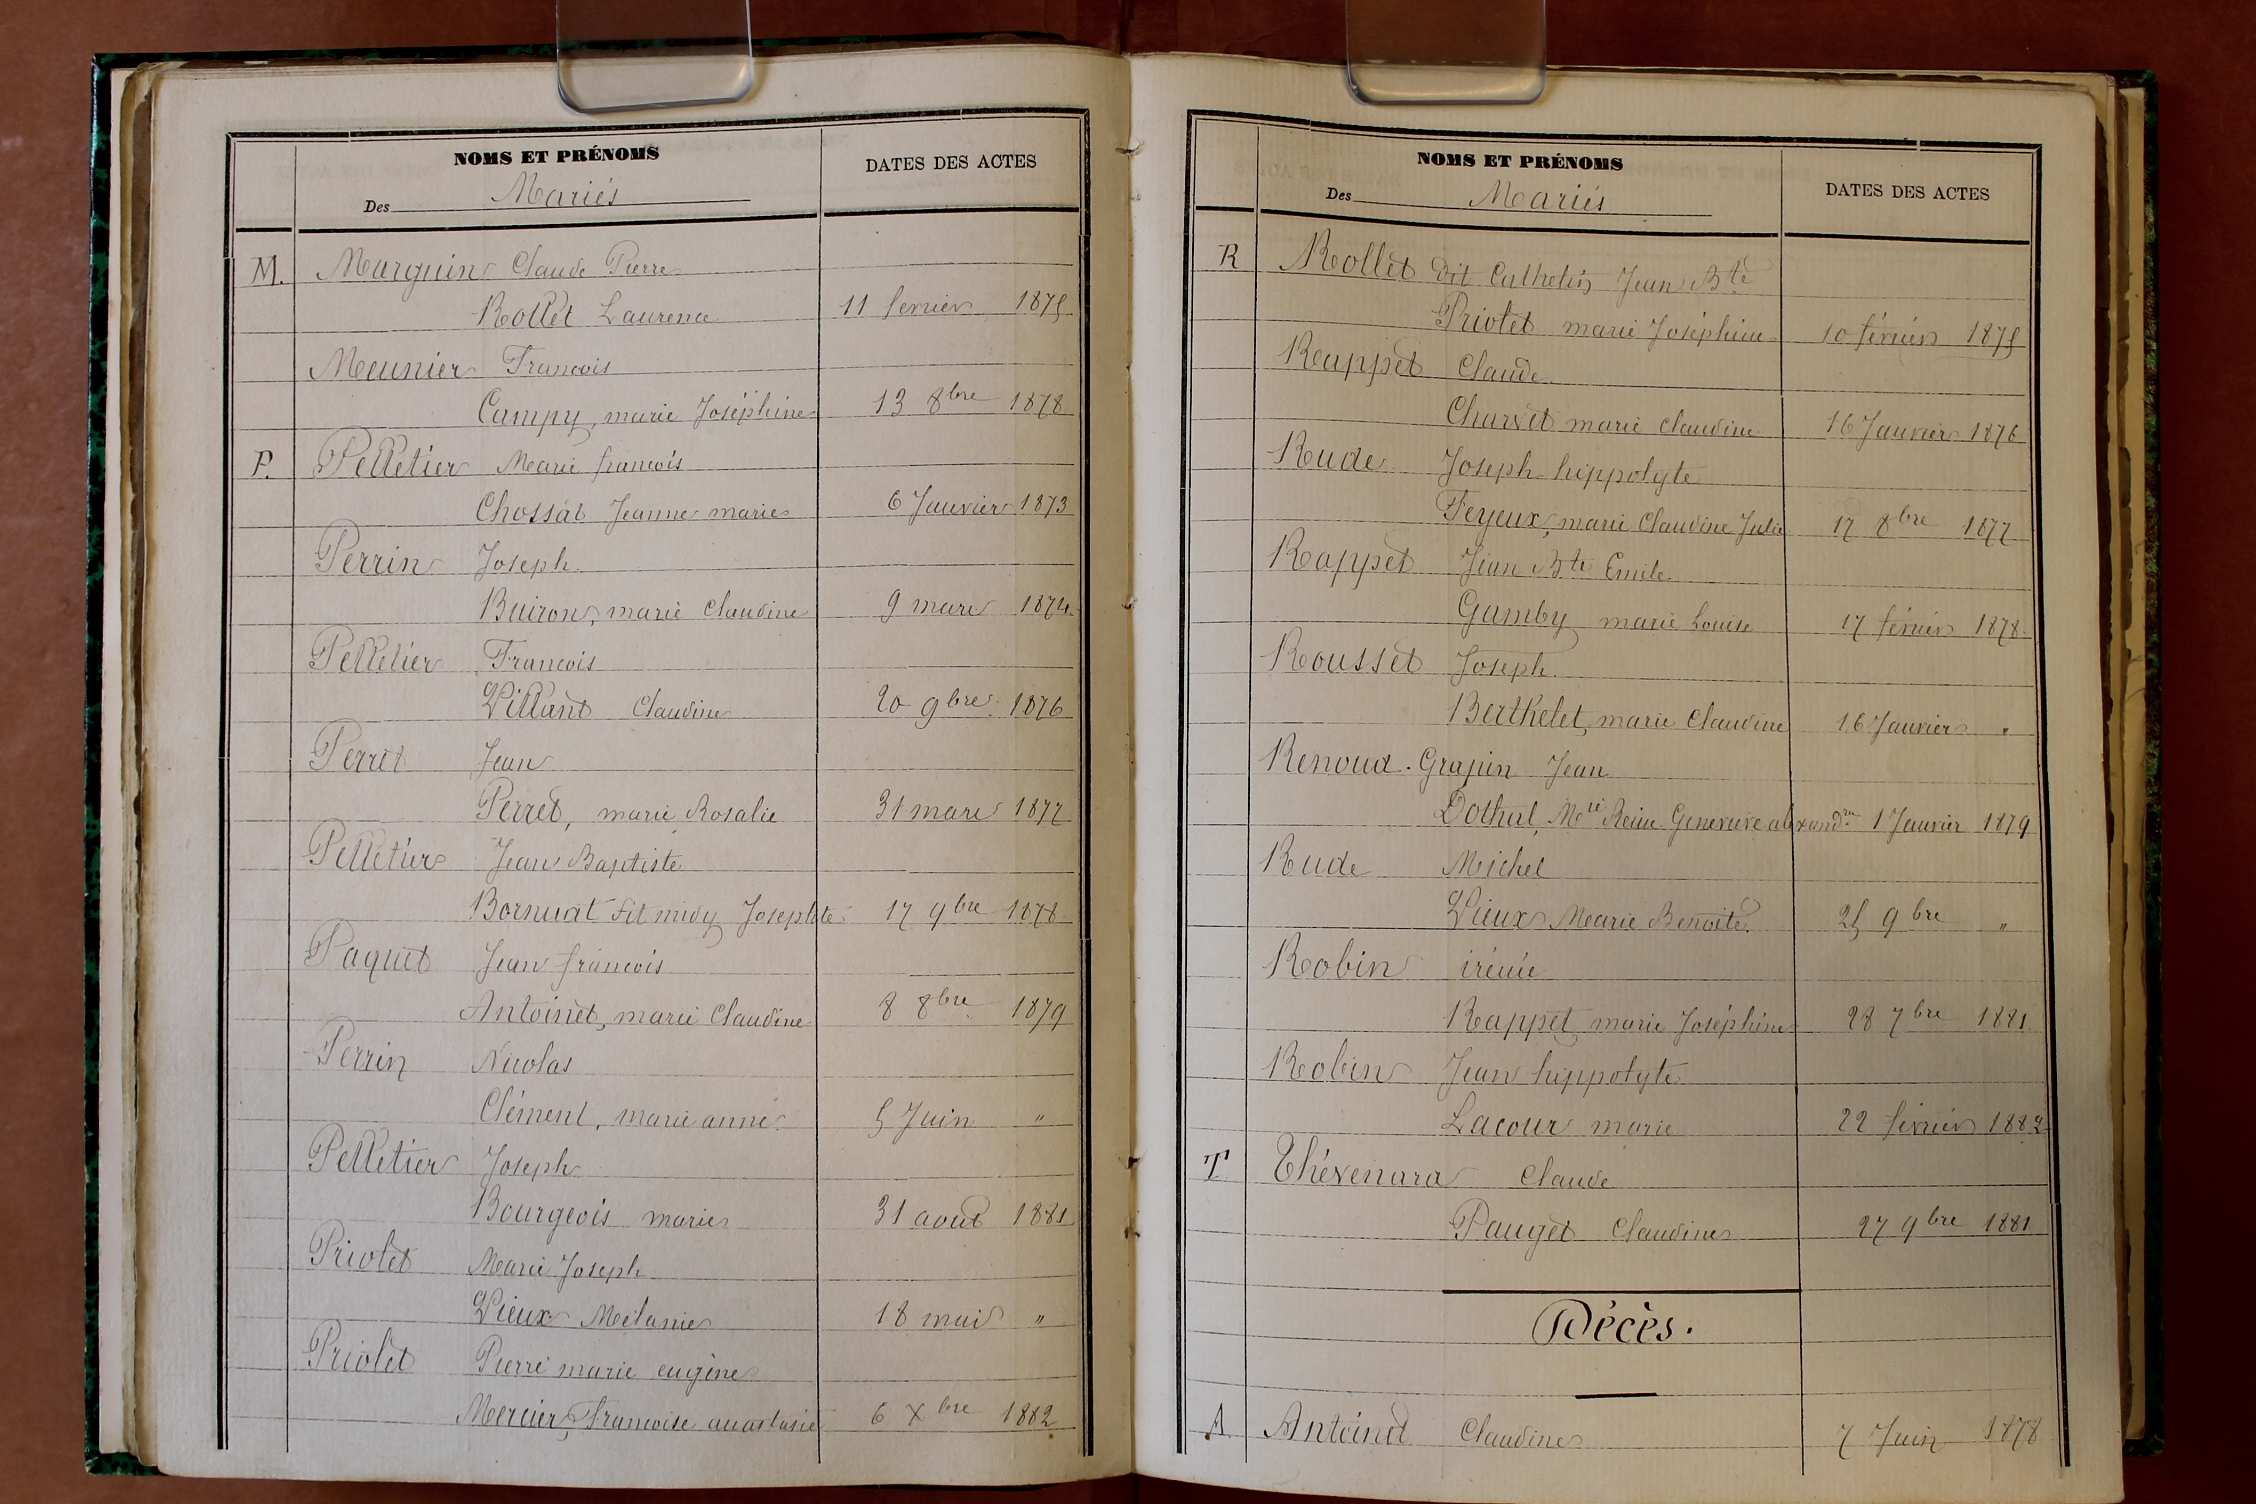 NOMS ET PRÉNOMS
Des Mariés
DATES DES ACTES
M. Marguin Claude Pierre
Rollet Laurence 11 fevrier 1875
Meunier Francois
Campy, marie Joséphine 13 8bre 1878
P. Pelletier Marie francois
Chossat Jeanne marie 6 Janvier 1873
Perrin Joseph
Buiron, marie Claudine 9 mars 1874
Pelletier Francois
Villand Claudine 20 9bre 1876
Perret Jean
Perret, marie Rosalie 31 mars 1877
Pelletier Jean Baptiste
Bornuat dit midy Josephte 17 9bre 1878
Paquet Jean francois
Antoinet, marie Claudine 8 8bre 1879
Perrin Nicolas
Clément, marie anne 5 Juin "
Pelletier Joseph
Bourgeois marie 31 aout 1881
Priolet Marie Joseph
Vieux Mélanie 18 mai "
Priolet Pierre marie eugène
Mercier, francoise anastasie 6 Xbre 1882
NOMS ET PRÉNOMS
Des Mariés
DATES DES ACTES
R Rollet dit Cathelin Jean Bte
Priolet marie Joséphine 10 février 1875
Rappet Claude
Charvet marie Claudine 16 Janvier 1876
Rude Joseph hippolyte
Feyeux, marie Claudine Julie 17 8bre 1877
Rappet Jean Bte Emile
Gamby marie Louise 17 février 1878
Rousset Joseph
Berthelet, marie Claudine 16 Janvier "
Renoud. Grapin Jean
Dothal, Mrie Reine Genevieve alexandne 1 Janvier 1879
Rude Michel
Vieux Marie Benoite 25 9bre "
Robin irénée
Rappet marie Joséphine 28 7bre 1881
Robin Jean hippolyte
Lacour marie 22 février 1882
T Thévenard Claude
Pauget Claudine 27 9bre 1881
Décès.
A Antoinet Claudine 7 Juin 1878